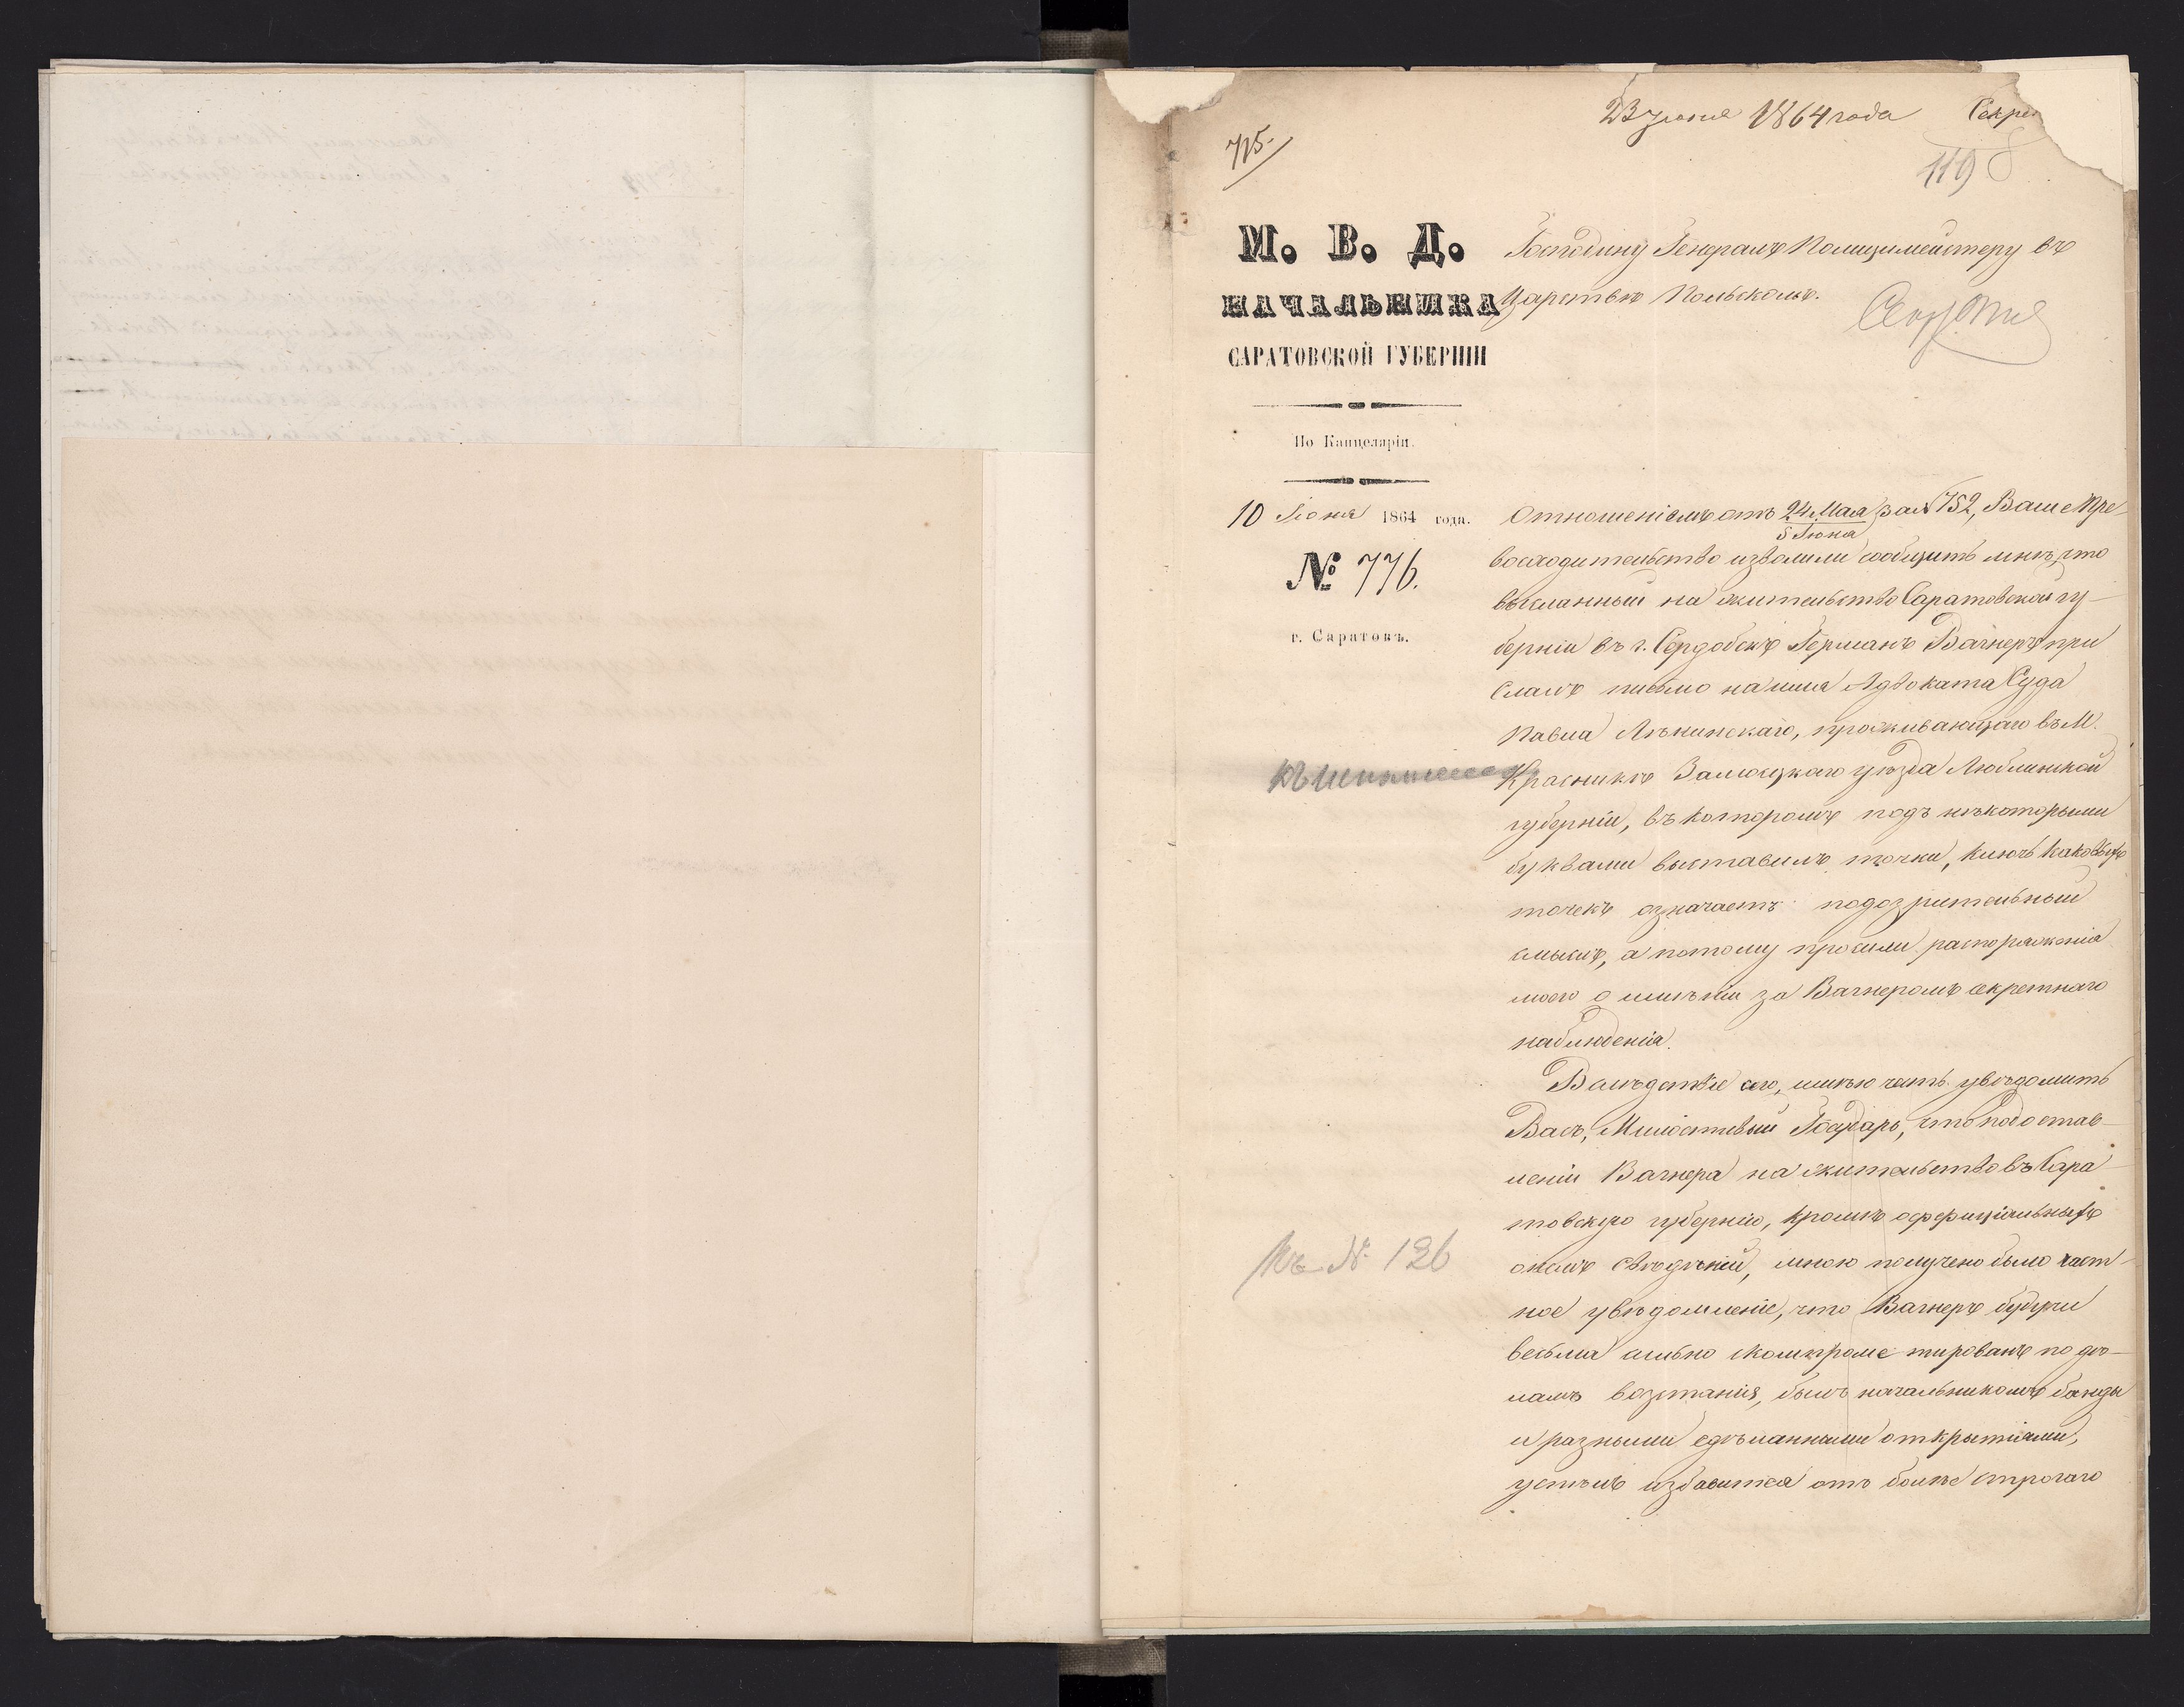 23 Іюня 1864 года Секре
775.
119
М. В. Д.
НАЧАЛЬНИКА
САРАТОВСКОЙ ГУБЕРНІИ
По Канцеляріи.
10 Іюня 1864 года.
№ 776.
г. Саратовъ.
Господину Генералъ Полицмейстеру въ
Царствѣ Польскомъ.
Отношеніемъ отъ 24 Мая / 5 Іюня за № 752, Ваше Пре-
восходительство изволили сообщить мнѣ, что
высланный на жительство Саратовской гу-
берніи въ г. Сердобскъ Германъ Вагнеръ при
слалъ письмо на имя Адвоката Суда
Павла проживающаго въ М.
Красникѣ Замосцкаго уѣзда Люблинской
губерніи, въ которомъ подъ нѣкоторыми
буквами выставилъ точки, ключъ каковыхъ
точекъ означаетъ подозрительный
смыслъ, а потому просили распоряженія
моего о имѣніи за Вагнеромъ секретнаго
наблюденія.
Вслѣдствіе сего, имѣю честь увѣдомить
Васъ, Милостивый Государь, что по достав-
леніи Вагнера на жительство въ Сара-
товскую губернію, кромѣ оффиціальныхъ
о немъ свѣдѣній, мною получено было част-
ное увѣдомленіе, что Вагнеръ будучи
весьма сильно скомпрометированъ по дѣ-
ламъ возстанія, былъ начальникомъ банды
и разными сдѣланными открытіями,
успѣлъ избавится отъ болѣе строгаго
Къ № 126